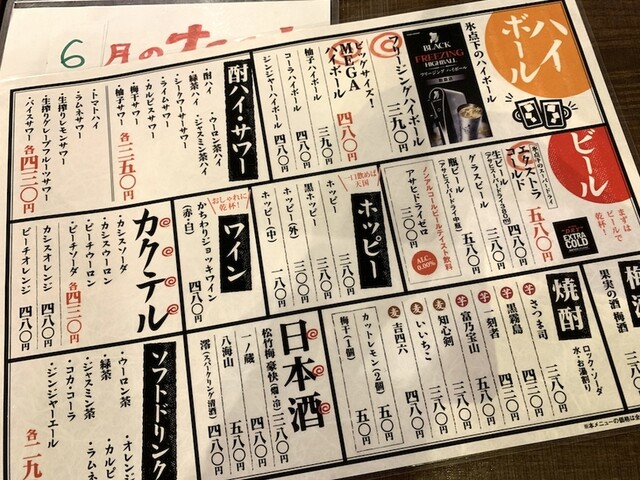 6月のオ
ハイボール
氷点下のハイボール
BLACK
FREEZING
HIGHBALL
フリージング ハイボール
フリージングハイボール 三九〇円
ビッグサイズ!
MEGAハイボール 四八〇円
柚子ハイボール 三九〇円
コーラハイボール 四八〇円
ジンジャーハイボール 四八〇円
酎ハイ・サワー
・酎ハイ
・ウーロン茶ハイ
・緑茶ハイ
・ジャスミン茶ハイ
・シークワーサーサワー
・ライムサワー
・カルピスサワー
・梅干サワー
・柚子サワー
各三五〇円
・トマトハイ
・ラムネサワー
・生搾りレモンサワー
・生搾りグレープフルーツサワー
・バイスサワー
各四三〇円
ビール
まずはビールで乾杯!
EXTRA COLD
氷点下のスーパードライ
エクストラコールド 五八〇円
生ビール 四八〇円
グラスビール
瓶ビール
アサヒスーパードライ(中瓶) 五八〇円
ノンアルコールビールテイスト飲料
アサヒドライゼロ 三〇〇円
ALC. 0.00%
ホッピー
一口飲めば天国
ホッピー 三八〇円
黒ホッピー 三八〇円
ホッピー(外) 二〇〇円
ホッピー(中) 一八〇円
ワイン
おしゃれに乾杯!
かちわりジョッキワイン
(赤・白) 四八〇円
カクテル
・カシスソーダ
・カシスウーロン
・ピーチウーロン
・ピーチソーダ
各四三〇円
カシスオレンジ 四八〇円
ピーチオレンジ 四八〇円
果実の酒 梅酒
焼酎
ロック・ソーダ
水・お湯割り
芋 さつま司 三八〇円
芋 黒霧島 四三〇円
芋 一刻者 五八〇円
芋 富乃宝山
麦 知心剣
麦 いいちこ 三八〇円
麦 吉四六
カットレモン(2個) 五〇円
梅干(1個) 五〇円
日本酒
松竹梅 豪快(燗・冷) 三八〇円
一ノ蔵
八海山
澪(スパークリング清酒) 四八〇円
ソフトドリンク
・ウーロン茶
・緑茶
・ジャスミン茶
・コカ・コーラ
・ジンジャーエール
・オレンジ
・カルピ
・ラムネ
各二九
※本メニューの価格は全